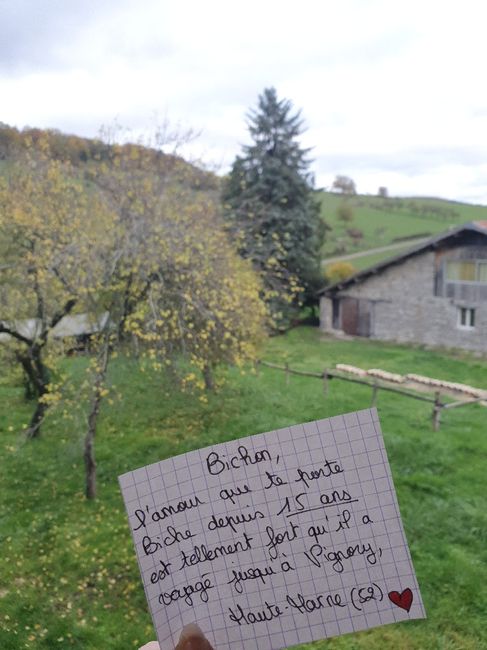 Bichon,
l'amour que te porte
Biche depuis 15 ans
est tellement fort qu'il a
voyagé jusqu'à Vignory,
Haute-Marne (52)